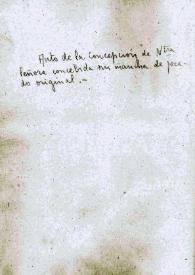 Auto de la Concepción de Ntra
Señora concebida sin mancha de peca-
do original.-